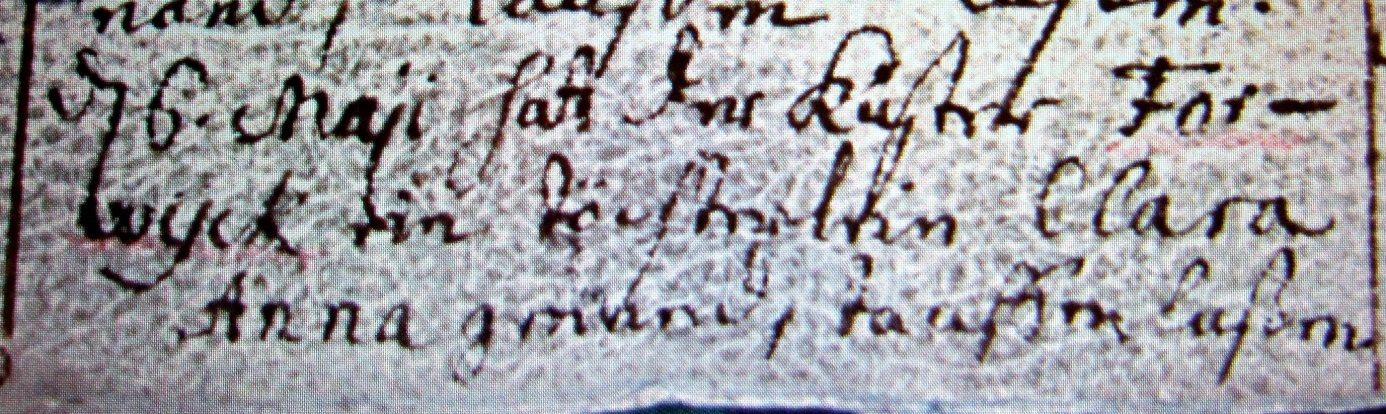 nand, tauffen laßen.
d. 76. Maji hat der Küster For-
wyck ein töchterlein Clara
Anna genand, tauffen laßen.